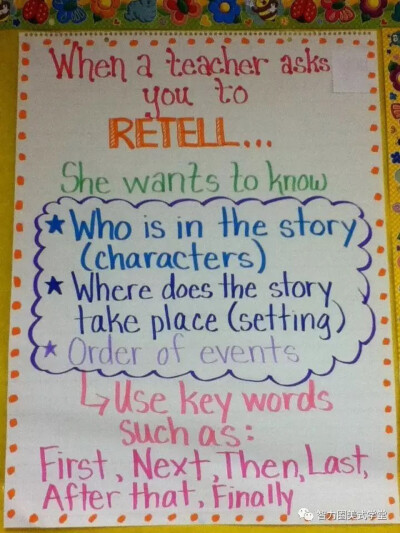 When a teacher asks
you to
RETELL...
She wants to know
★ Who is in the story
(characters)
★ Where does the story
take place (setting)
★ Order of events
↳ Use key words
such as:
First, Next, Then, Last,
After that, Finally
智方圆美式学堂